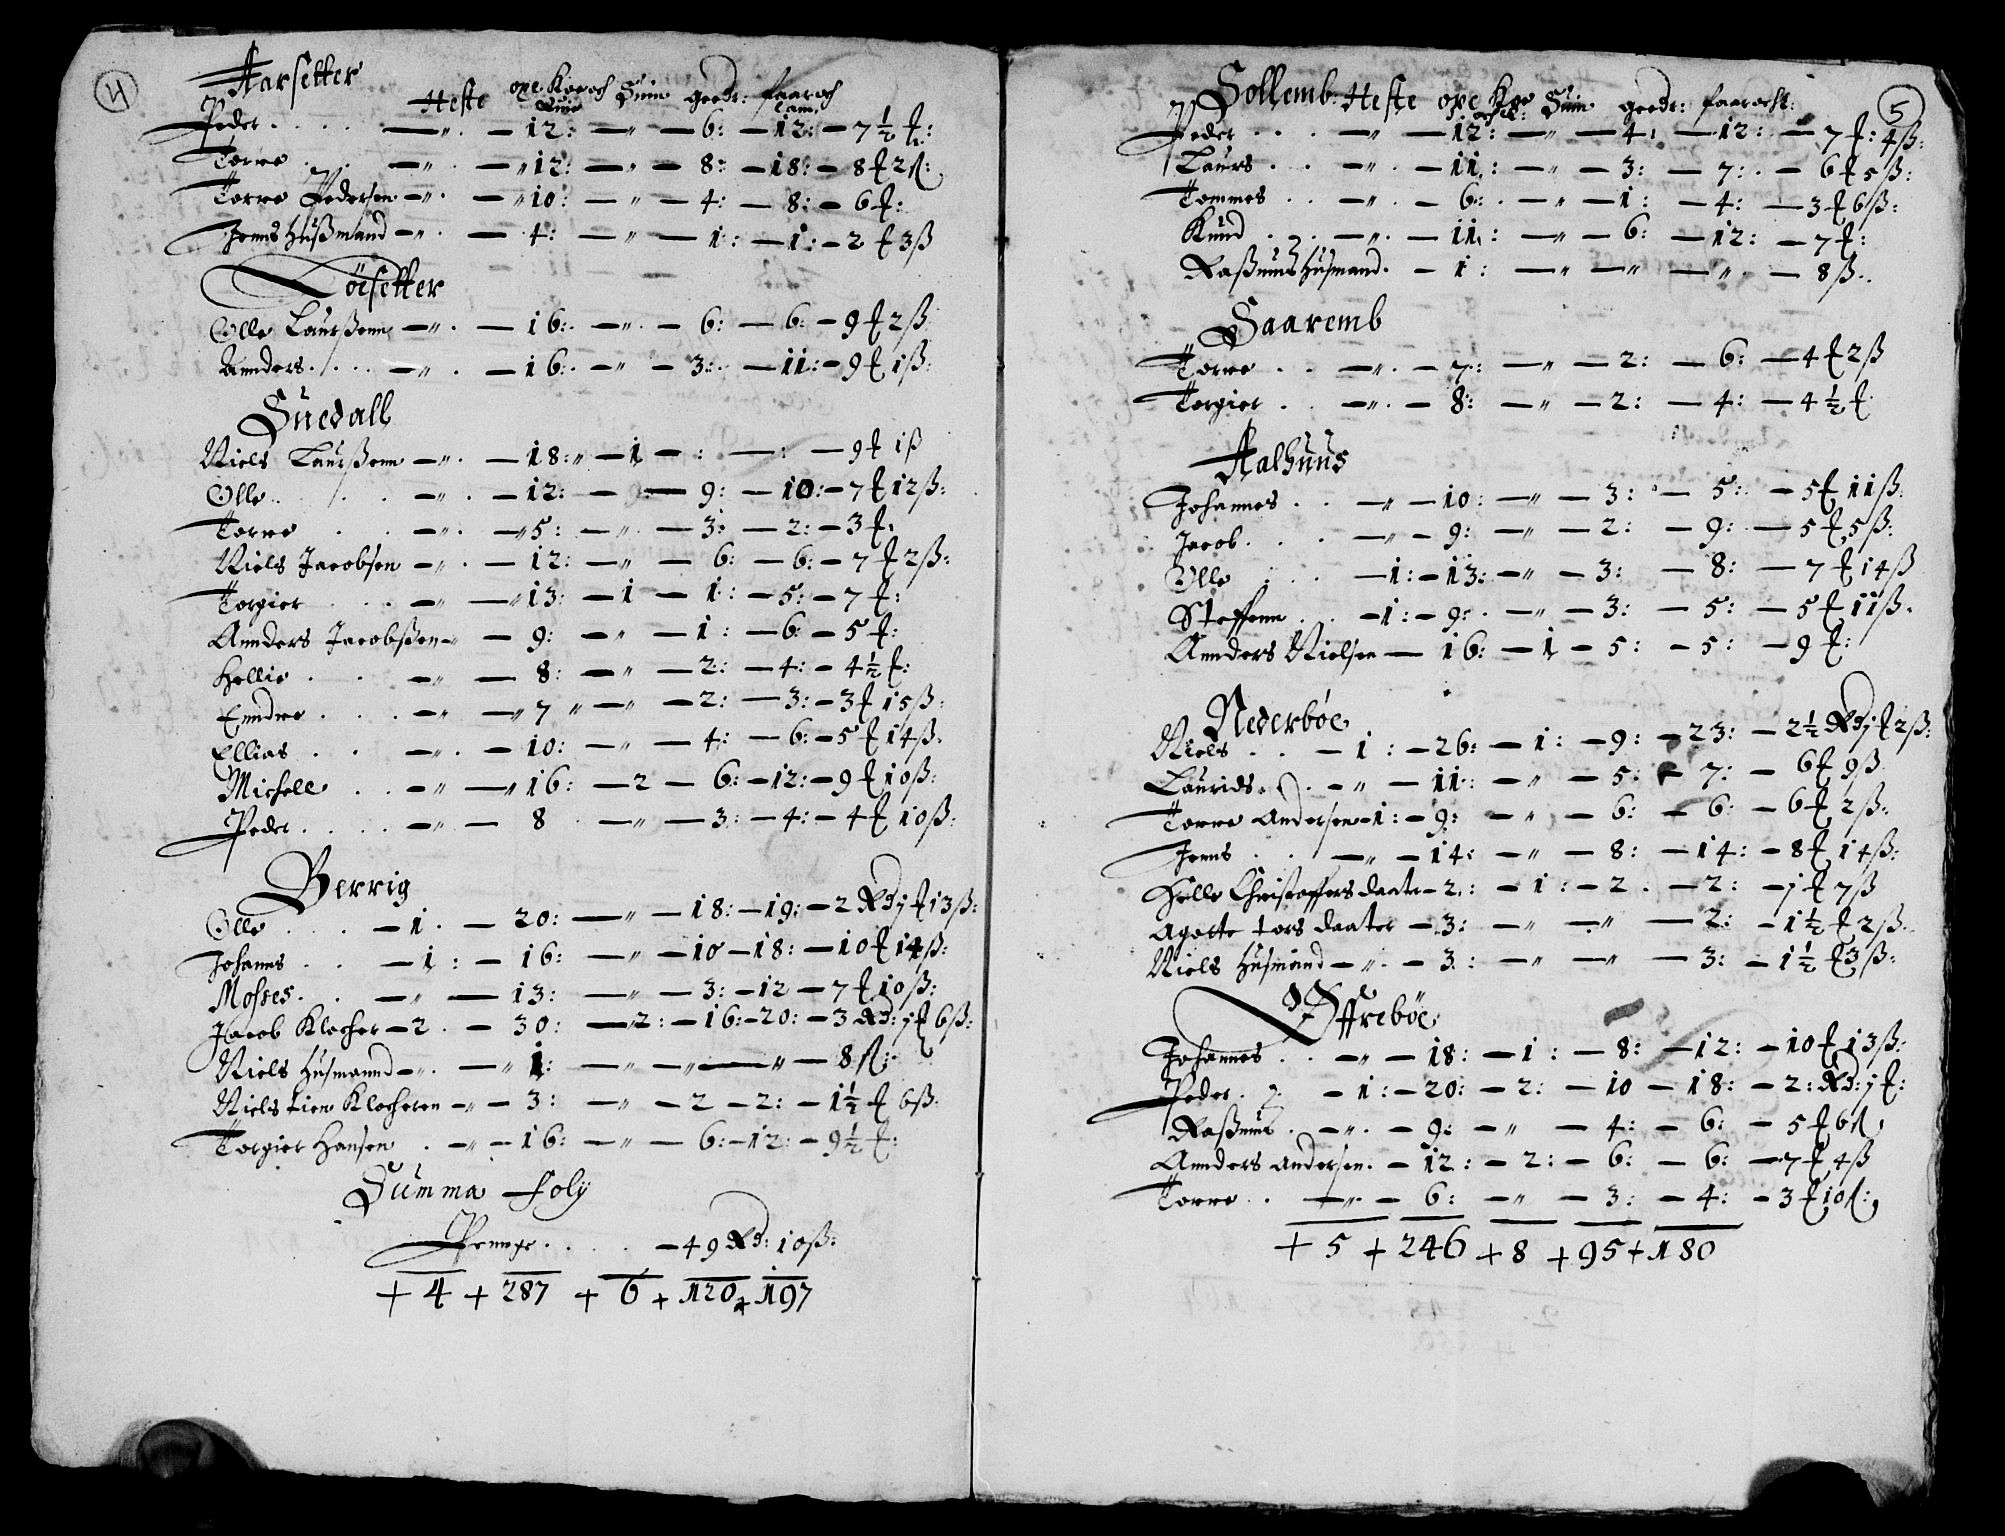 4
Aarsetter
Heste oxe Kiør och Suin geeder: faar och
Quie Lam:
Peder . . . . — „ . — 12: — „ — 6: — 12: — 7 ½ ₰:
Torre . . . — „ . — „ 12: — „ — 8: — 18: — 8 ₰ 2 ß:
Torre Pedersen — „ . — „ 10: — „ — 4: — 8: — 6 ₰:
Jenns Hußmand — „ . — 4: — „ — 1: — 1: — 2 ₰ 3 ß
Löesetter
Olle Laurßenn — „ . — 16: . — „ . — 6: — 6: — 9 ₰ 2 ß:
Annders . . . . — „ . — 16: . — „ — 3: . — 11: — 9 ₰ 1 ß:
Suedall
Niels Laurßenn — „ . — 18: „ — 1 — : — : — 9 ₰ 1 ß
Olle . . . . — „ . — 12: — — 9: — 10: — 7 ₰ 12 ß:
Torre . . . — „ . — „ 5: — „ . — 3: — 2: — 3 ₰:
Niels Jacobsen — „ . — 12: — „ — 6: — 6: — 7 ₰ 2 ß:
Torgier . . . — „ — „ 13: — 1 — 1: — 5: — 7 ₰:
Annders Jacobßen — „ — 9: — „ — 1: — 6: — 5 ₰:
Hellie . . . — „ — 8: — „ — 2: — 4: — 4 ½ ₰:
Enndre . . . — „ — „ 7 „ — „ — 2: — 3: — 3 ₰ 15 ß:
Ellias . . . — „ . — 10: — „ — 4: — 6: — 5 ₰ 14 ß:
Michell . . — „ — „ 16: — 2 — 6: — 12: — 9 ₰ 10 ß:
Peder . . . . — „ — 8 — „ — 3: — 4: — 4 ₰ 10 ß:
Berrig
Olle . . . — 1 . — 20: — „ — 18: — 19: — 2 Rd j ₰ 13 ß:
Johanns . . — 1: — 16: — „ — 10 — 18: — 10 ₰ 14 ß:
Mosses . . — „ — 13: — „ — 3: — 12 — 7 ₰ 10 ß:
Jacob Klocher — 2 . — 30: — 2: — 16: — 20: — 3 Rd: j ₰ 6 ß:
Niels Husmannd — „ . — „ 1: — „ — „ — „ — 8 ß:
Niels tien Klocheren — „ — 3: — „ — 2 — 2: — 1 ½ ₰ 6 ß:
Torgier Hansen . — „ — 16: — „ — 6: — 12: — 9 ½ ₰:
Summa Foly
Pennge . . . . — 49 Rd: 10 ß:
+ 4 + 287 + 6 + 120 + 197
5
Sollemb: Heste oxe Køe Suin geedr: faar och L:
Peder . . . — „ — 12: — „ — 4: — 12: — 7 ₰: 4 ß:
Laurs . . . — „ . — 11: — „ — 3: — 7: . — 6 ₰ 5 ß:
Tommes . . — „ . — 6: . — „ — 1: — 4: — 3 ₰ 6 ß:
Knud . . . — „ . — 11: — „ — 6: — 12: — 7 ₰:
Raßmus Husmand . — 1: — „ — „ — „ . — 8 ß:
Saaremb
Torre . . — „ . — 7: — „ — 2: — 6: — 4 ₰ 2 ß
Torgier . . — „ . — 8: — „ — 2: — 4: — 4 ½ ₰
Aalhuus
Johannes . . — „ — 10: — „ — 3: — 5: — 5 ₰ 11 ß:
Jacob . . . — „ — 9: — „ — 2: — 9: — 5 ₰ 5 ß:
Olle . . . — 1: — 13: — „ — 3: — 8: — 7 ₰ 14 ß
Steffenn . . — 1: — 9: . — „ — 3: — 5: — 5 ₰ 11 ß:
Annders Nielsen — 16: — 1 — 5: — 5: — 9 ₰:
Nederbøe
Niels . . — 1: — 26: — 1: — 9: — 23: — 2 ½ Rd j ₰ 2 ß:
Laurids . . — „ — 11: — „ — 5: — 7: — 6 ₰ 9 ß
Torre Andersen — 1: — 9: — „ — 6: — 6: — 6 ₰ 2 ß:
Jenns . . — „ — 14: — „ — 8: — 14: — 8 ₰ 14 ß:
Helle Christoffers daater — 2: — 1: — 2 . — 2: — j ₰ 7 ß
Agatte tors daater — 3: — „ — „ — 2: — 1 ½ ₰ 2 ß:
Niels Husmand — „ . — 3: — „ — „ — 3: — 1 ½ ₰ 3 ß:
Øffrebøe
Johannes . . — „ — 18: — 1: — 8: — 12: — 10 ₰ 13 ß:
Peder . . — 1: — 20: — 2: — 10 — 18: — 2: Rd: j ₰:
Raßmus . — „ . — 9: — „ — 4: — 6: — 5 ₰ 6 ß:
Annders andersen . — 12: — 2: — 6: — 6: — 7 ₰ 4 ß
Torre . . — „ — 6: — „ — 3: — 4: — 3 ₰ 10 ß:
+ 5 + 246 + 8 + 95 + 180